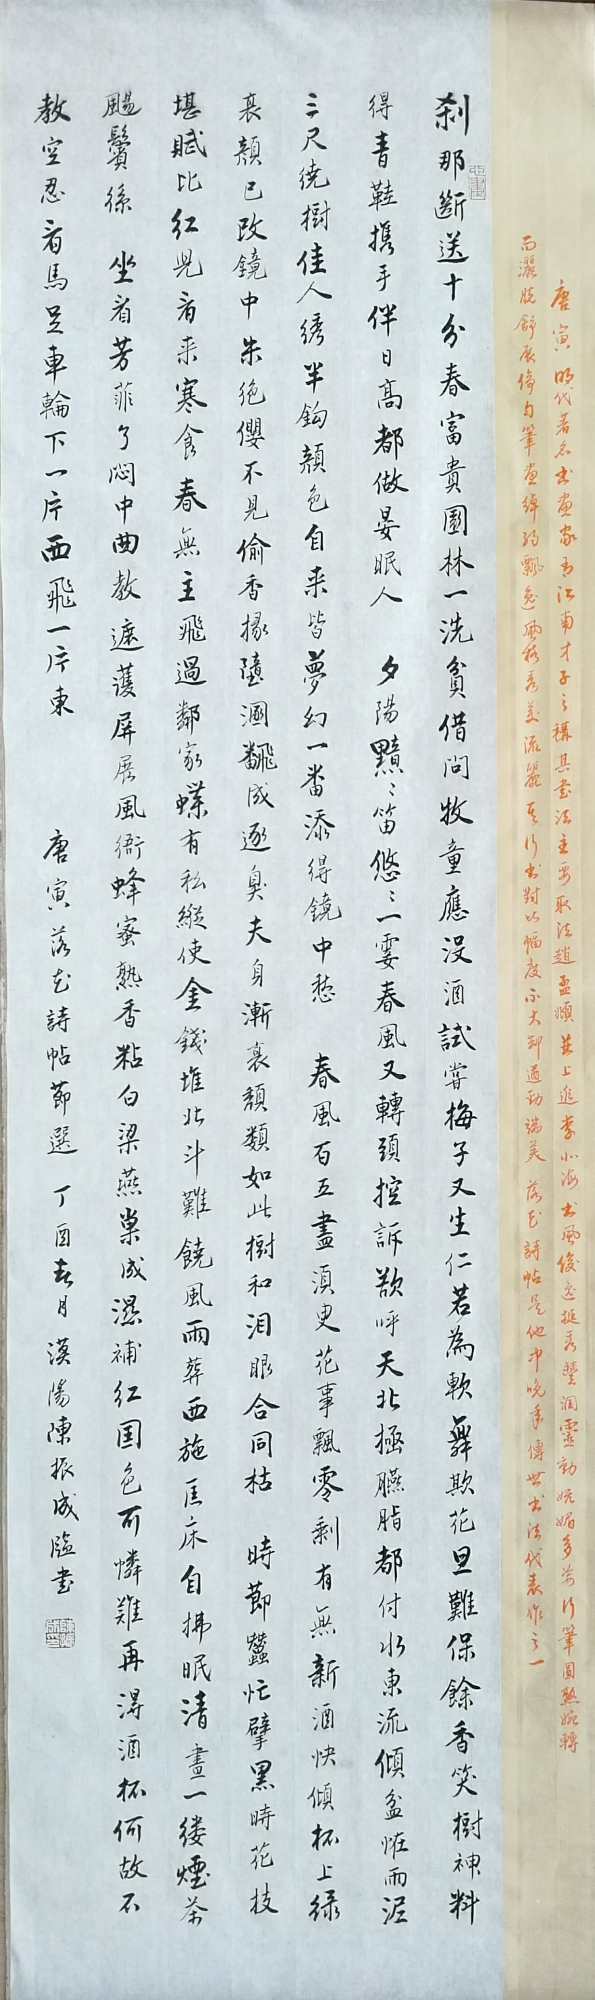 唐寅明代著名書畫家有江南才子之稱其書法主要取法趙孟頫並上追李北海書風俊逸挺秀豐潤靈動娬媚多姿行筆圓熟婉轉
而灑脫舒展偹勻筆畫綽約飄逸風格秀美流麗其行書對比幅度不大卻遒勁端美落花詩帖是他中晚年傳世書法代表作之一
刹那斷送十分春富貴園林一洗貧借問牧童應没酒試嘗梅子又生仁若為軟舞欺花旦難保餘香笑樹神料
得青鞋攜手伴日高都做晏眠人 夕陽黯〻笛悠〻一霎春風又轉頭控訴欲呼天北極臙脂都付水東流傾盆怪雨泥
三尺繞樹佳人綉半鈎顔色自来皆夢幻一番添得鏡中愁 春風百五盡湏臾花事飄零剩有無新酒快傾杯上緑
衰顔已改鏡中朱絶纓不見偷香掾墮溷飜成逐臭夫身漸衰頽類如此樹和泪眼合同枯 時節蠶忙擘黑時花技
堪賦比紅兒看来寒食春無主飛過鄰家蝶有私縱使金錢堆北斗難饒風雨葬西施匡床自拂眠清晝一縷煙茶
颺鬢絲 坐看芳菲了悶中曲教遮護屏展風衙蜂蜜熟香粘白梁燕巢成濕補紅国色可憐難再得酒杯何故不
教空忍看馬足車輪下一片西飛一片東 唐寅落花詩帖節選 丁酉春月漢陽陳振成臨書